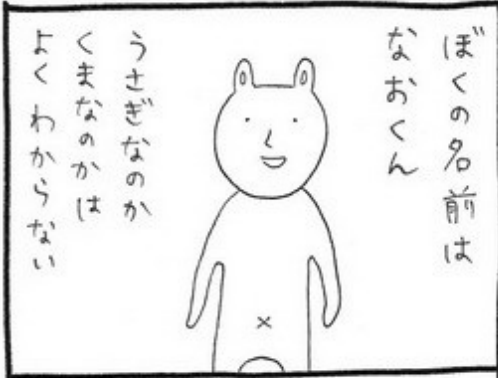 ぼくの名前は
なおくん
うさぎなのか
くまなのかは
よくわからない